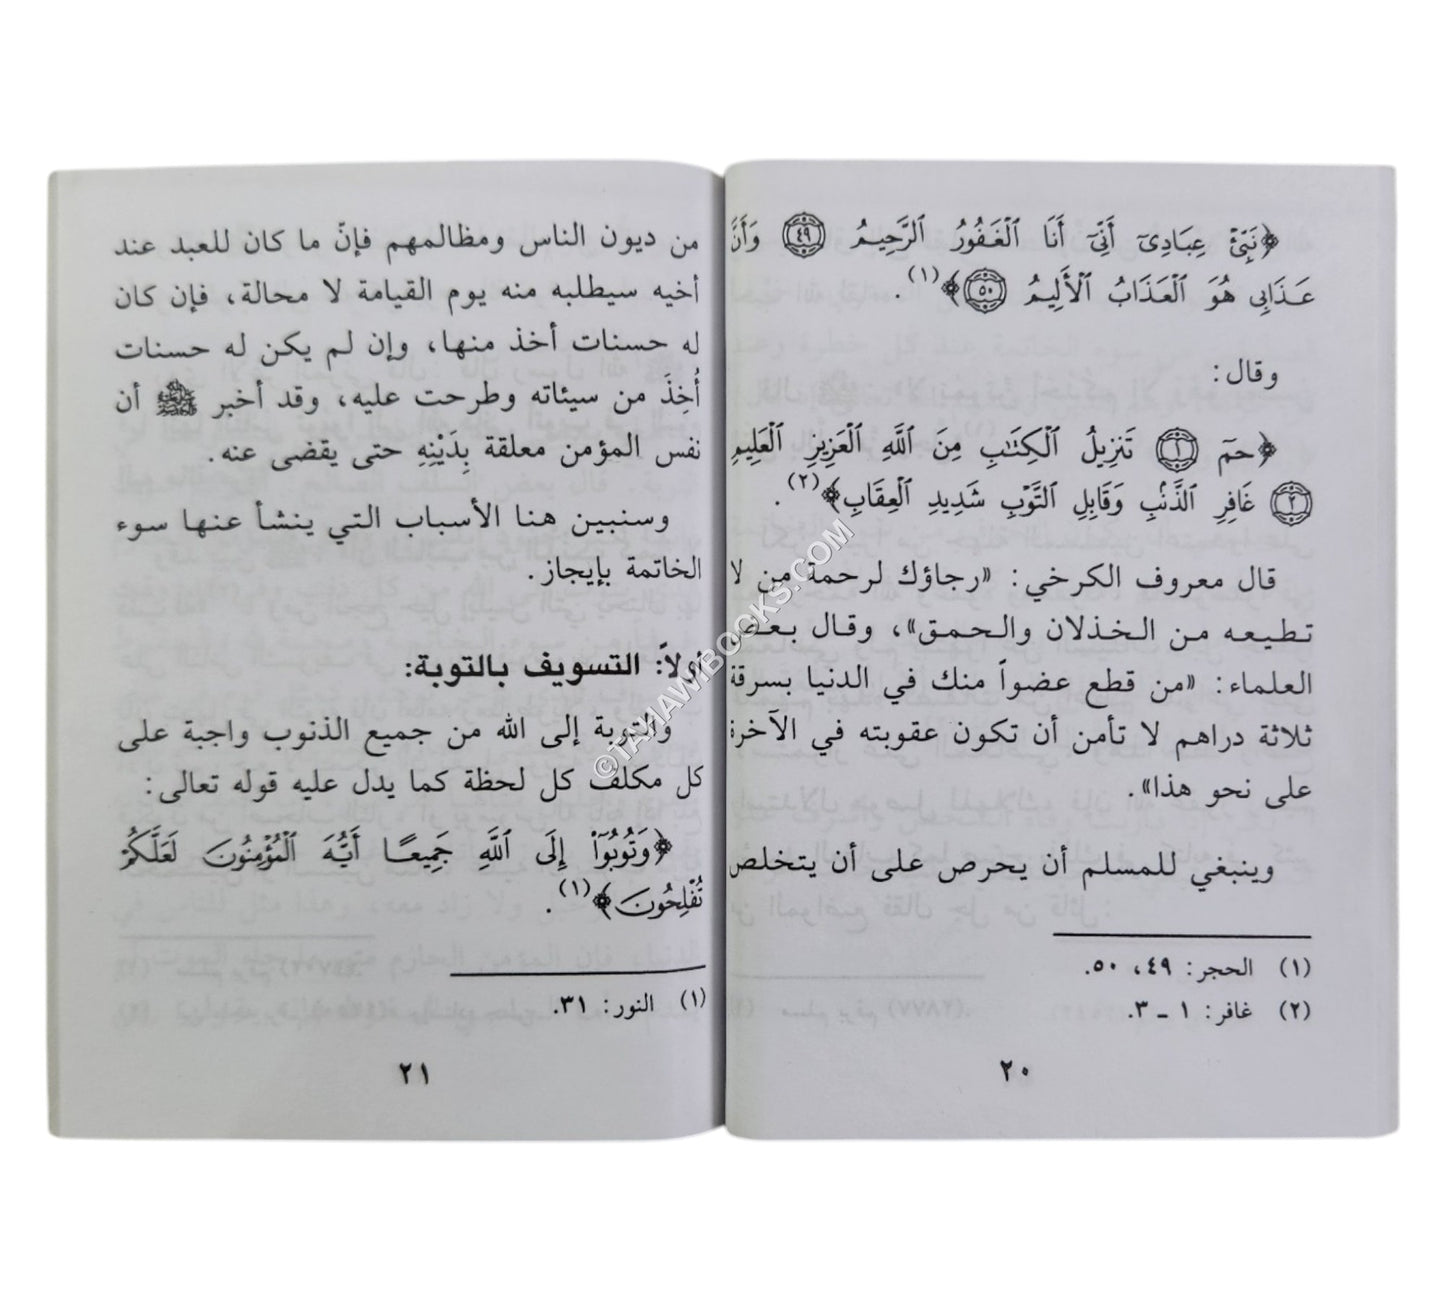 ﴿نَبِّئْ عِبَادِىٓ أَنِّىٓ أَنَا ٱلْغَفُورُ ٱلرَّحِيمُ ٤٩ وَأَنَّ
عَذَابِى هُوَ ٱلْعَذَابُ ٱلْأَلِيمُ ٥٠﴾(١).
وقال:
﴿حمٓ ١ تَنزِيلُ ٱلْكِتَٰبِ مِنَ ٱللَّهِ ٱلْعَزِيزِ ٱلْعَلِيمِ
٢ غَافِرِ ٱلذَّنۢبِ وَقَابِلِ ٱلتَّوْبِ شَدِيدِ ٱلْعِقَابِ﴾(٢).
قال معروف الكرخي: «رجاؤك لرحمة من لا
تطيعه من الخذلان والحمق»، وقال بعض
العلماء: «من قطع عضواً منك في الدنيا بسرقة
ثلاثة دراهم لا تأمن أن تكون عقوبته في الآخرة
على نحو هذا».
وينبغي للمسلم أن يحرص على أن يتخلص
(١) الحجر: ٤٩، ٥٠.
(٢) غافر: ١ - ٣.
٢٠
من ديون الناس ومظالمهم فإنّ ما كان للعبد عند
أخيه سيطلبه منه يوم القيامة لا محالة، فإن كان
له حسنات أخذ منها، وإن لم يكن له حسنات
أُخِذَ من سيئاته وطرحت عليه، وقد أخبر ﷺ أن
نفس المؤمن معلقة بِدَيْنِهِ حتى يقضى عنه.
وسنبين هنا الأسباب التي ينشأ عنها سوء
الخاتمة بإيجاز.
أولاً: التسويف بالتوبة:
والتوبة إلى الله من جميع الذنوب واجبة على
كل مكلف كل لحظة كما يدل عليه قوله تعالى:
﴿وَتُوبُوٓا۟ إِلَى ٱللَّهِ جَمِيعًا أَيُّهَ ٱلْمُؤْمِنُونَ لَعَلَّكُمْ
تُفْلِحُونَ﴾(١).
(١) النور: ٣١.
٢١
©TAHAWIBOOKS.COM